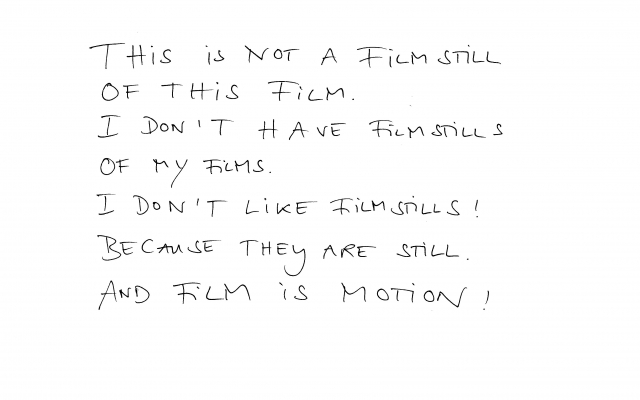 THiS iS NOT A FiLMSTiLL
OF THiS FiLM.
I DON'T HAVE FiLMSTiLLS
OF MY FiLMS.
I DON'T LiKE FiLMSTiLLS!
BECAUSE THEy ARE STiLL.
AND FiLM iS MOTiON!